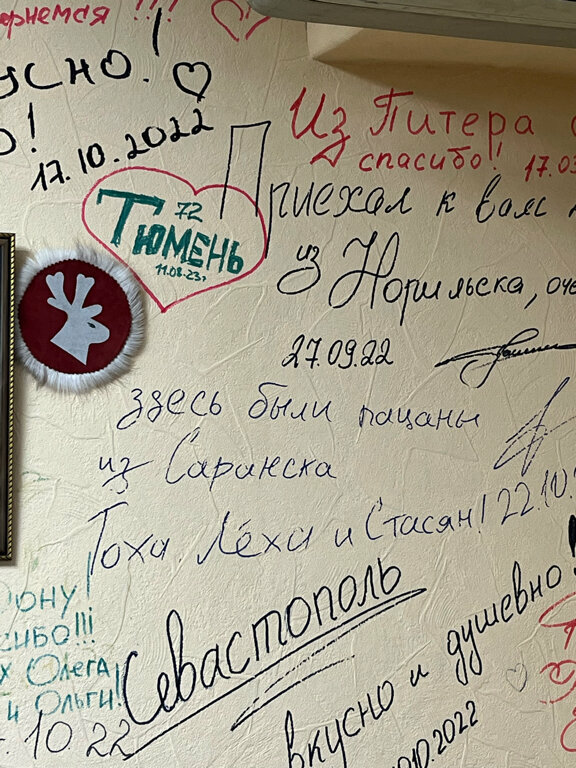 !!!
17.10.2022
Из Питера
спасибо! 17.0
72
Тюмень
11.08.23г
Приехал к вам
из Норильска,
27.09.22
здесь были пацаны
из Саранска
Тоха Лёха и Стасян! 22.10.
Севастополь
Олега
и Ольги!
10.22
вкусно и душевно!
10.2022